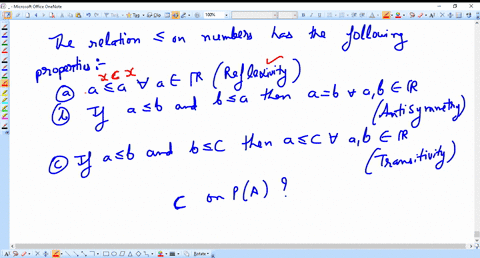 Microsoft Office OneNote
The relation ≤ on numbers has the following
properties:-
x ⊂ x
(a) a ≤ a ∀ a ∈ ℝ (Reflexivity)
(b) If a ≤ b and b ≤ a then a = b ∀ a, b ∈ ℝ
(Antisymmetry)
(c) If a ≤ b and b ≤ c then a ≤ c ∀ a, b ∈ ℝ
(Transitivity)
⊂ on P(A) ?